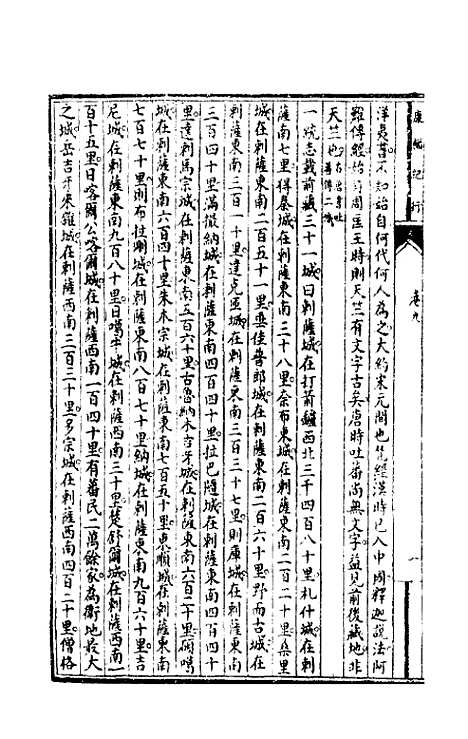 康輶紀行
卷九
一
洋夷書不知始自何代何人為之大約宋元間也梵經漢時已入中國釋迦說法阿
難傳經始於周匡王時則天竺有文字古矣唐時吐蕃尚無文字益見前後藏地非
天竺也
一統志載前藏三十一城曰剌薩城在打箭鑪西北三千四百八十里札什城在剌
薩南七里得秦城在剌薩東南三十八里奈布東城在剌薩東南二百二十里桑里
城在剌薩東南二百五十一里垂佳普郎城在剌薩東南二百六十里野而古城在
剌薩東南三百一十里達克匝城在剌薩東南三百三十七里則庫城在剌薩東南
三百四十里滿撮納城在剌薩東南四百四十里拉巴隨城在剌薩東南四百四十
里達剌馬宗城在剌薩東南五百六十里古魯納木吉牙城在剌薩東南六百二十里碩噶
城在剌薩東南六百四十里朱木宗城在剌薩東南七百五十里東順城在剌薩東南
七百七十里則布拉剛城在剌薩東南八百七十里納城在剌薩東南九百六十里吉
尼城在剌薩東南九百八十里日噶牛城在剌薩西南三十里楚舒爾城在剌薩西南一
百十五里日喀爾公喀爾城在剌薩西南一百四十里有番民二萬餘家為衛地最大
之城岳吉牙來雜城在剌薩西南三百三十里多宗城在剌薩西南四百二十里僧格